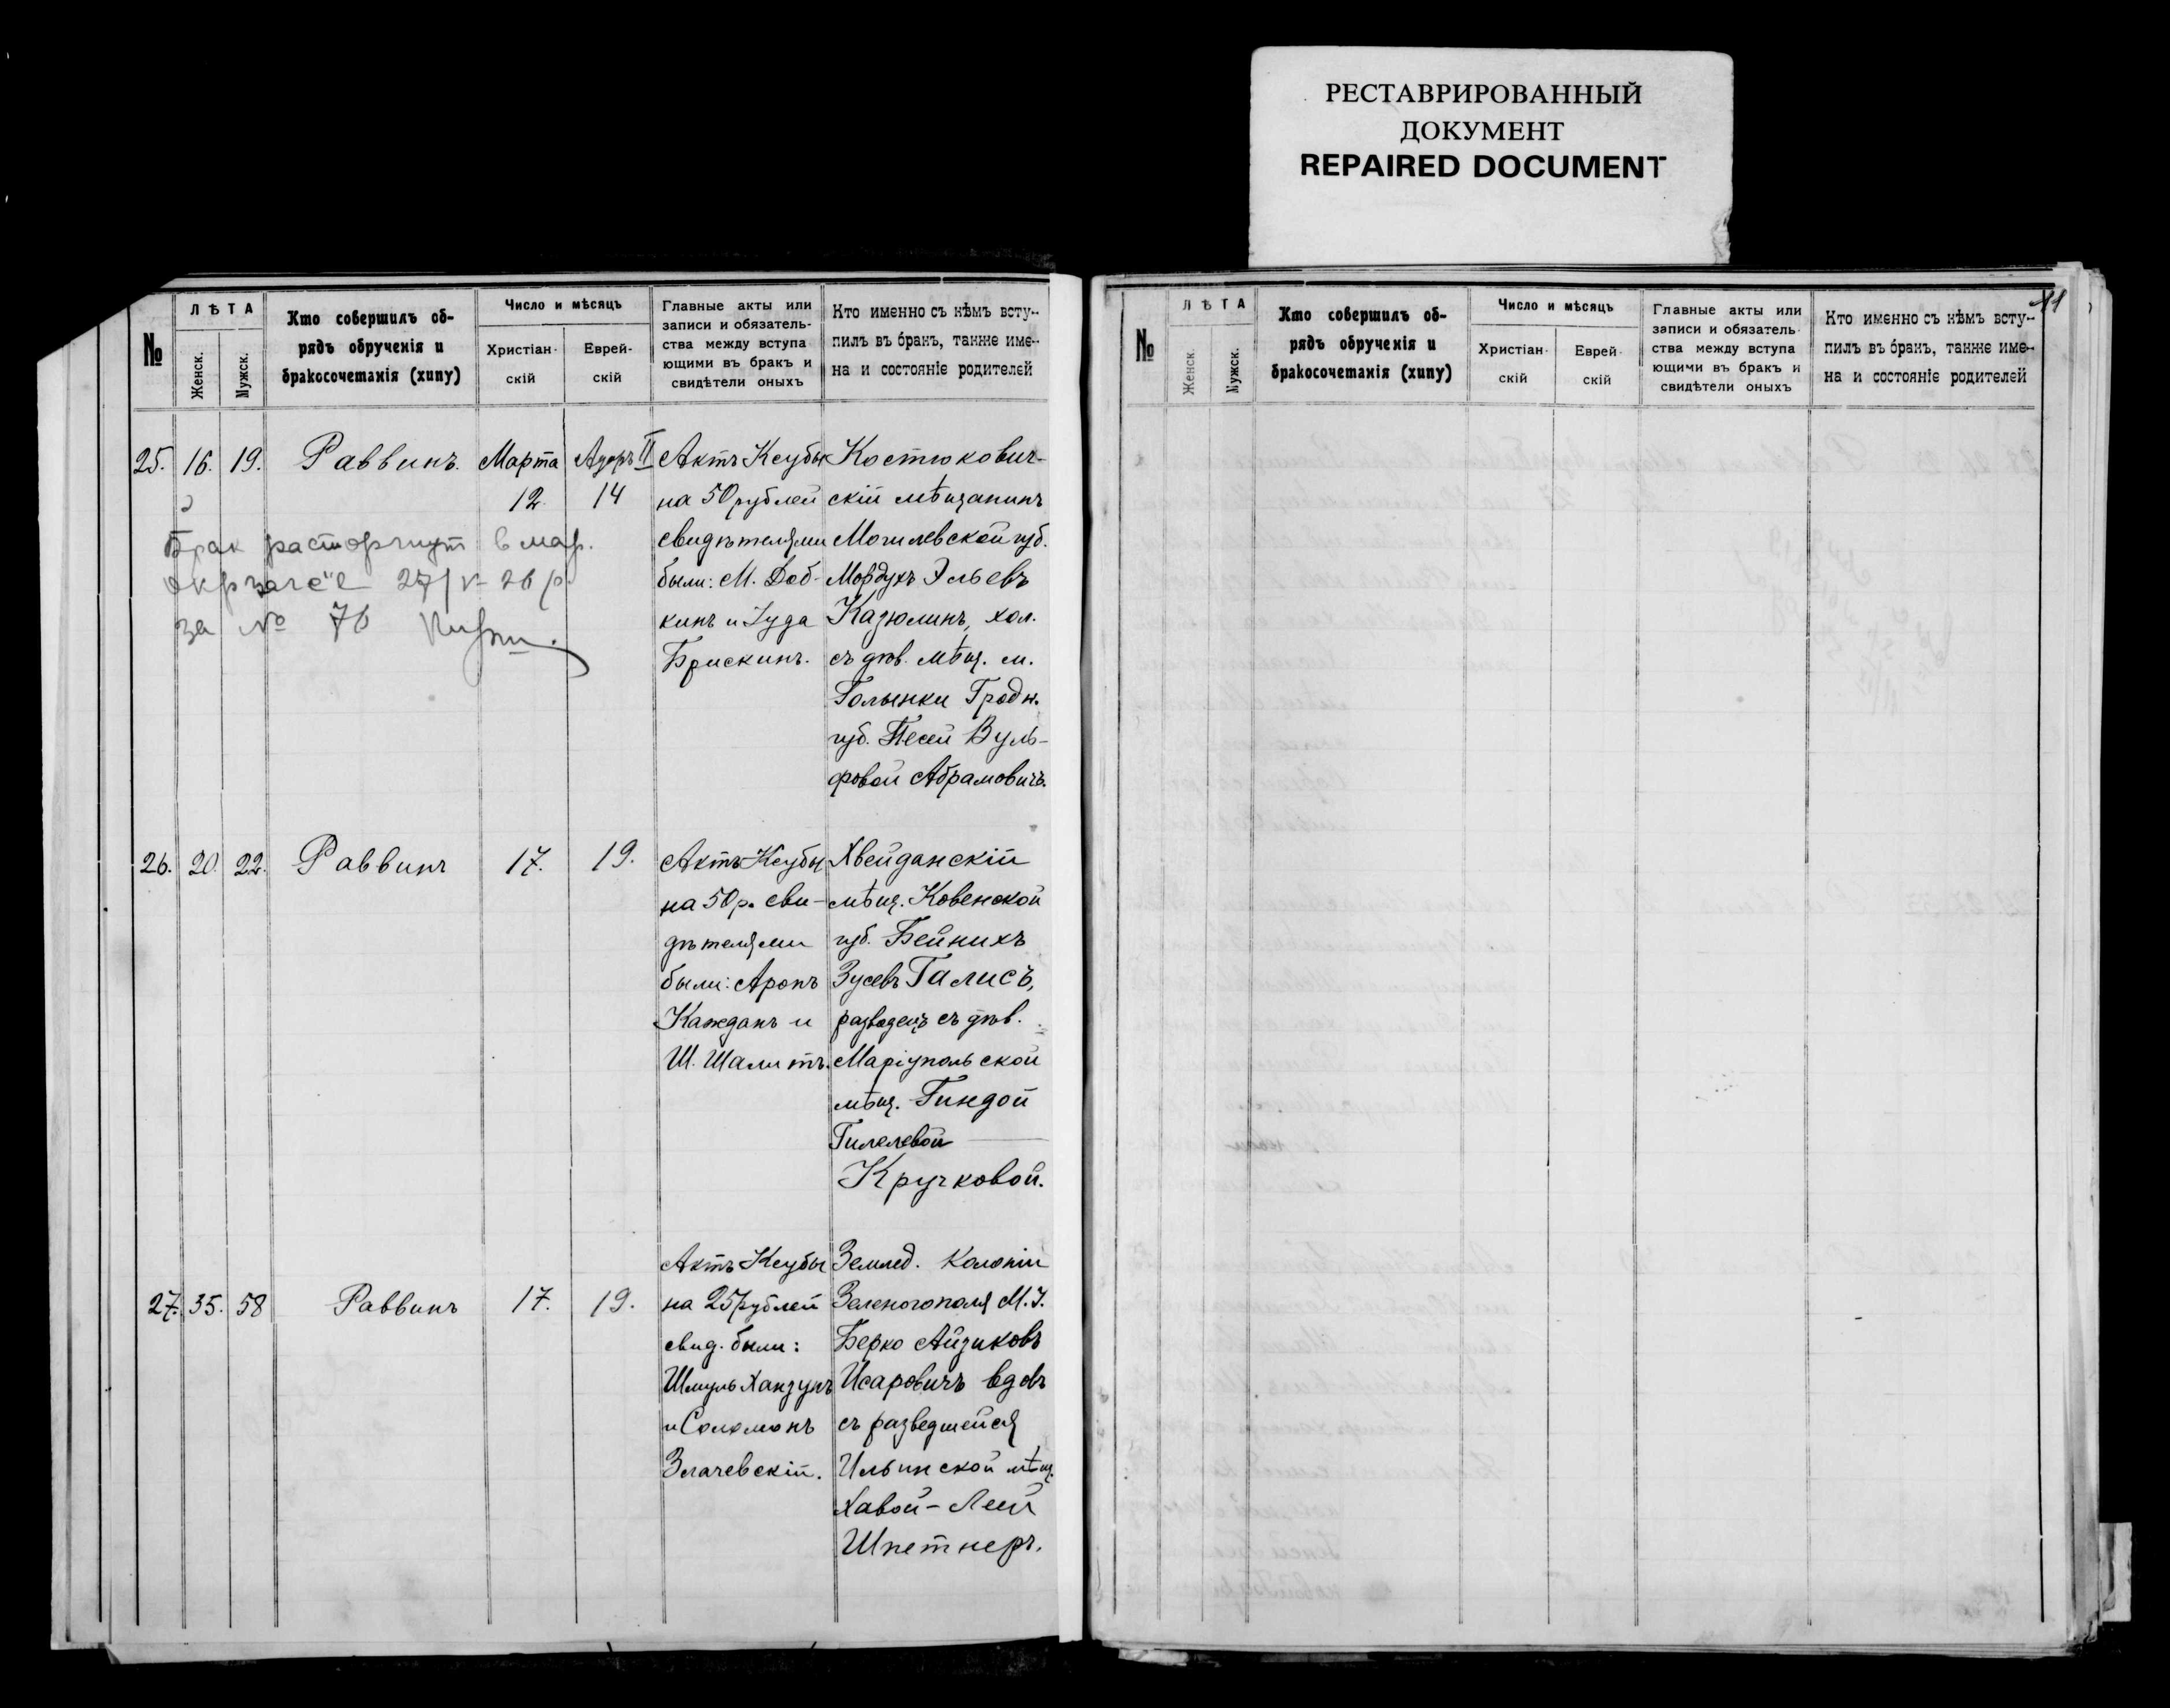 РЕСТАВРИРОВАННЫЙ
ДОКУМЕНТ
REPAIRED DOCUMENT
№
ЛѢТА
Женск.
Мужск.
Кто совершилъ об-
рядъ обрученія и
бракосочетанія (хипу)
Число и мѣсяцъ
Христіан-
скій
Еврей-
скій
Главные акты или
записи и обязатель-
ства между вступа
ющими въ бракъ и
свидѣтели оныхъ
Кто именно съ кѣмъ всту-
пилъ въ бракъ, также име-
на и состояніе родителей
25. 16. 19. Раввинъ. Марта 12. Адаръ II 14
Актъ Кеубы
на 50 рублей
свидѣтелями
были: М. Доб-
кинъ и Іуда
Брискинъ.
Костюкович-
скій мѣщанинъ
Могилевской губ.
Мордухъ Эльевъ
Казюлинъ, хол.
съ дѣв. мѣщ. м.
Голынки Гродн.
губ. Песей Вуль-
фовой Абрамовичъ.
Брак расторгнут в мар.
за № 76
26. 20. 22. Раввинъ 17. 19.
Актъ Кеубы
на 50 р. сви-
дѣтелями
были: Аронъ
Кажданъ и
Ш. Шалитъ.
Хвейданскій
мѣщ. Ковенской
губ. Бейнихъ
Зусевъ Галисъ,
разведецъ съ дѣв.
Маріупольской
мѣщ. Гиндой
Гилелевой
Кручковой.
27. 35. 58 Раввинъ 17. 19.
Актъ Кеубы
на 25 рублей
свид. были:
Шмуль Ханзунъ
и Соломонъ
Злачевскій.
Землед. колоніи
Зеленогополя М. У.
Берко Айзиковъ
Исаровичъ вдов
съ разведшейся
Ильинской мѣщ.
Хавой-Леей
Шпетнеръ.
11
№
ЛѢТА
Женск.
Мужск.
Кто совершилъ об-
рядъ обрученія и
бракосочетанія (хипу)
Число и мѣсяцъ
Христіан-
скій
Еврей-
скій
Главные акты или
записи и обязатель-
ства между вступа
ющими въ бракъ и
свидѣтели оныхъ
Кто именно съ кѣмъ всту-
пилъ въ бракъ, также име-
на и состояніе родителей